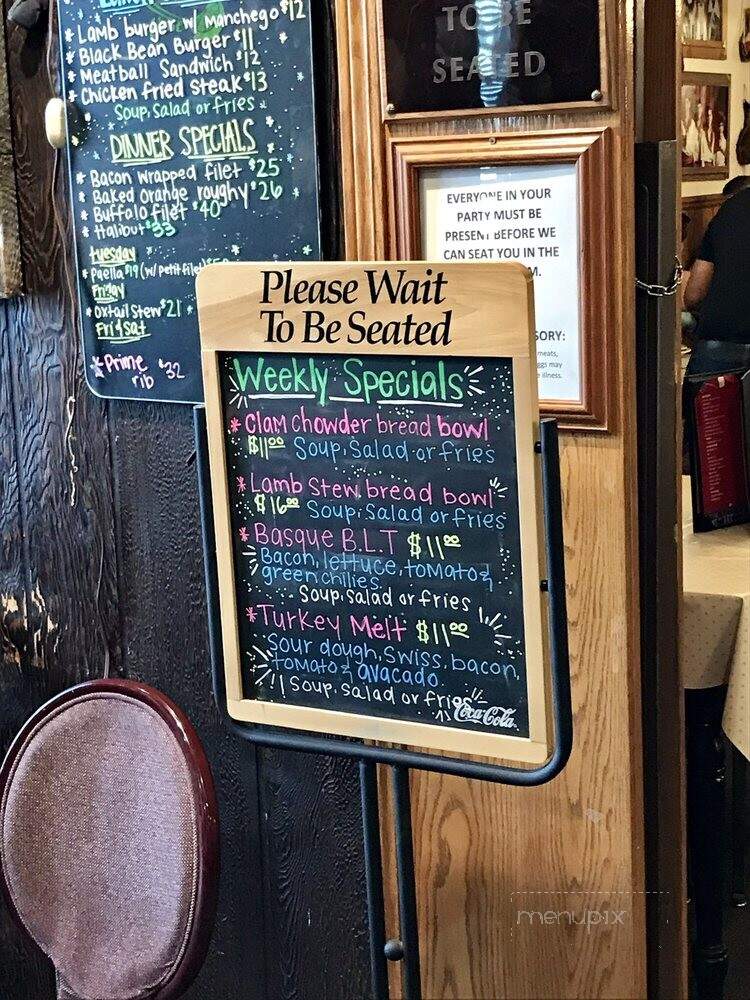 * Lamb burger w/ manchego $12
* Black Bean Burger $11
* Meatball Sandwich $12
* Chicken fried steak $13
Soup, Salad or fries
DINNER SPECIALS
* Bacon wrapped filet $25
* Baked Orange roughy $26
* Buffalo filet $40
* Halibut $33
tuesday
* Paella $19 (w/ petit filet
Friday
* Oxtail stew $21
Fri & Sat
* Prime rib $32
TO BE
SEATED
EVERYONE IN YOUR
PARTY MUST BE
PRESENT BEFORE WE
CAN SEAT YOU IN THE
M.
SORY:
meats,
ggs may
illness.
Please Wait
To Be Seated
Weekly Specials
* Clam chowder bread bowl
$11.00 Soup, Salad or fries
* Lamb Stew bread bowl
$16.00 Soup, Salad or fries
* Basque B.L.T $11.00
Bacon, lettuce, tomato &
green chilies
Soup, salad or fries
* Turkey Melt $11.00
Sour dough, Swiss, bacon,
tomato & avacado
Soup, salad or fries
Coca-Cola
menupix